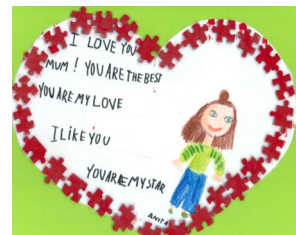 I LOVE YOU
MUM! YOU ARE THE BEST
YOU ARE MY LOVE
I LIKE YOU
YOU ARE MY STAR
ANITA